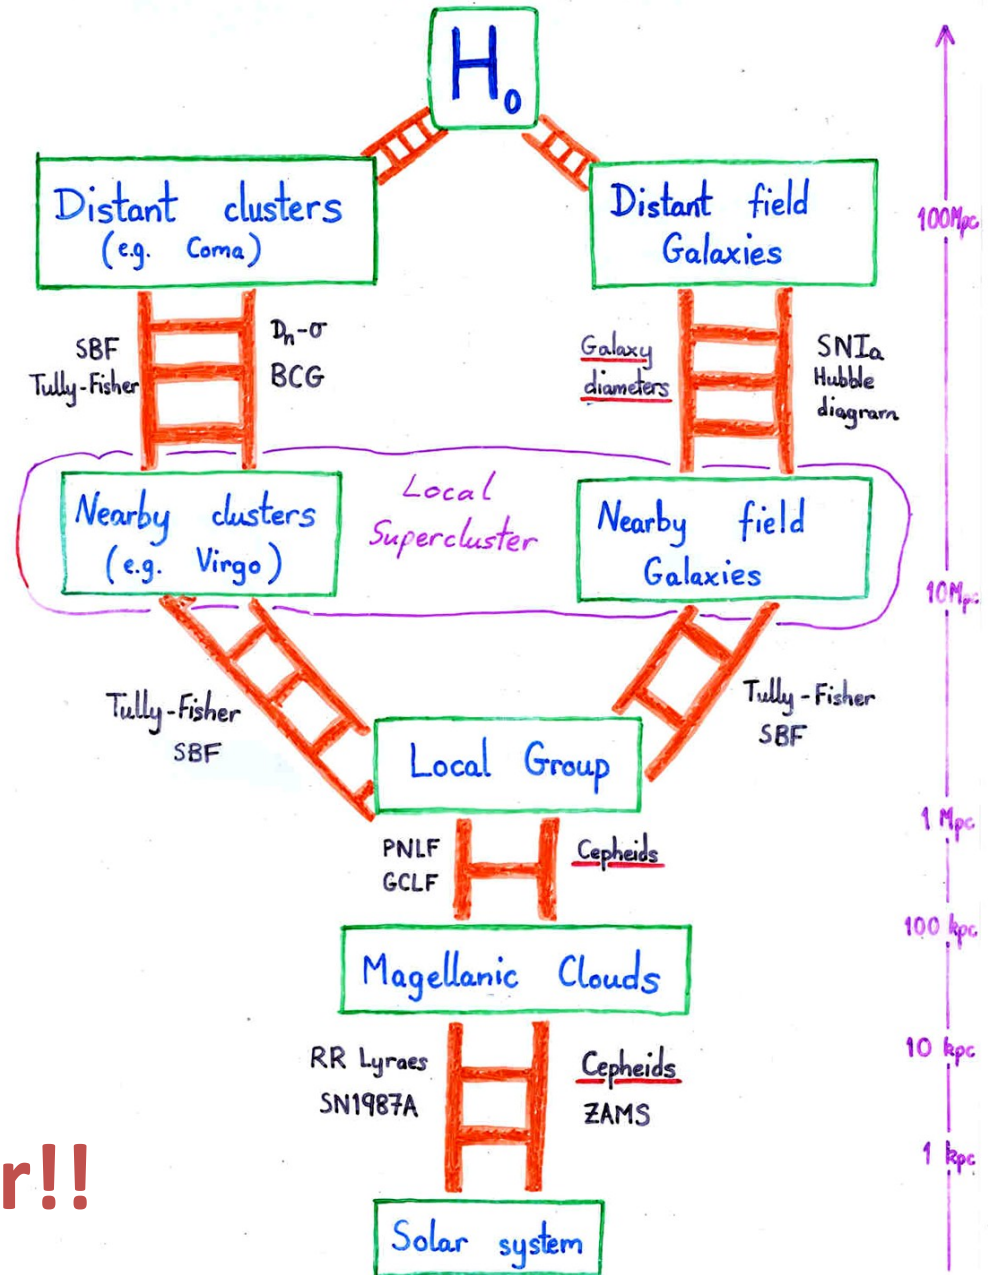 H₀
Distant clusters
(e.g. Coma)
Distant field
Galaxies
100Mpc
SBF
Tully-Fisher
Dₙ-σ
BCG
Galaxy
diameters
SNIa
Hubble
diagram
Local
Supercluster
Nearby clusters
(e.g. Virgo)
Nearby field
Galaxies
10Mpc
Tully-Fisher
SBF
Tully-Fisher
SBF
Local Group
1 Mpc
PNLF
GCLF
Cepheids
100 kpc
Magellanic Clouds
10 kpc
RR Lyraes
SN1987A
Cepheids
ZAMS
1 kpc
r!!
Solar system